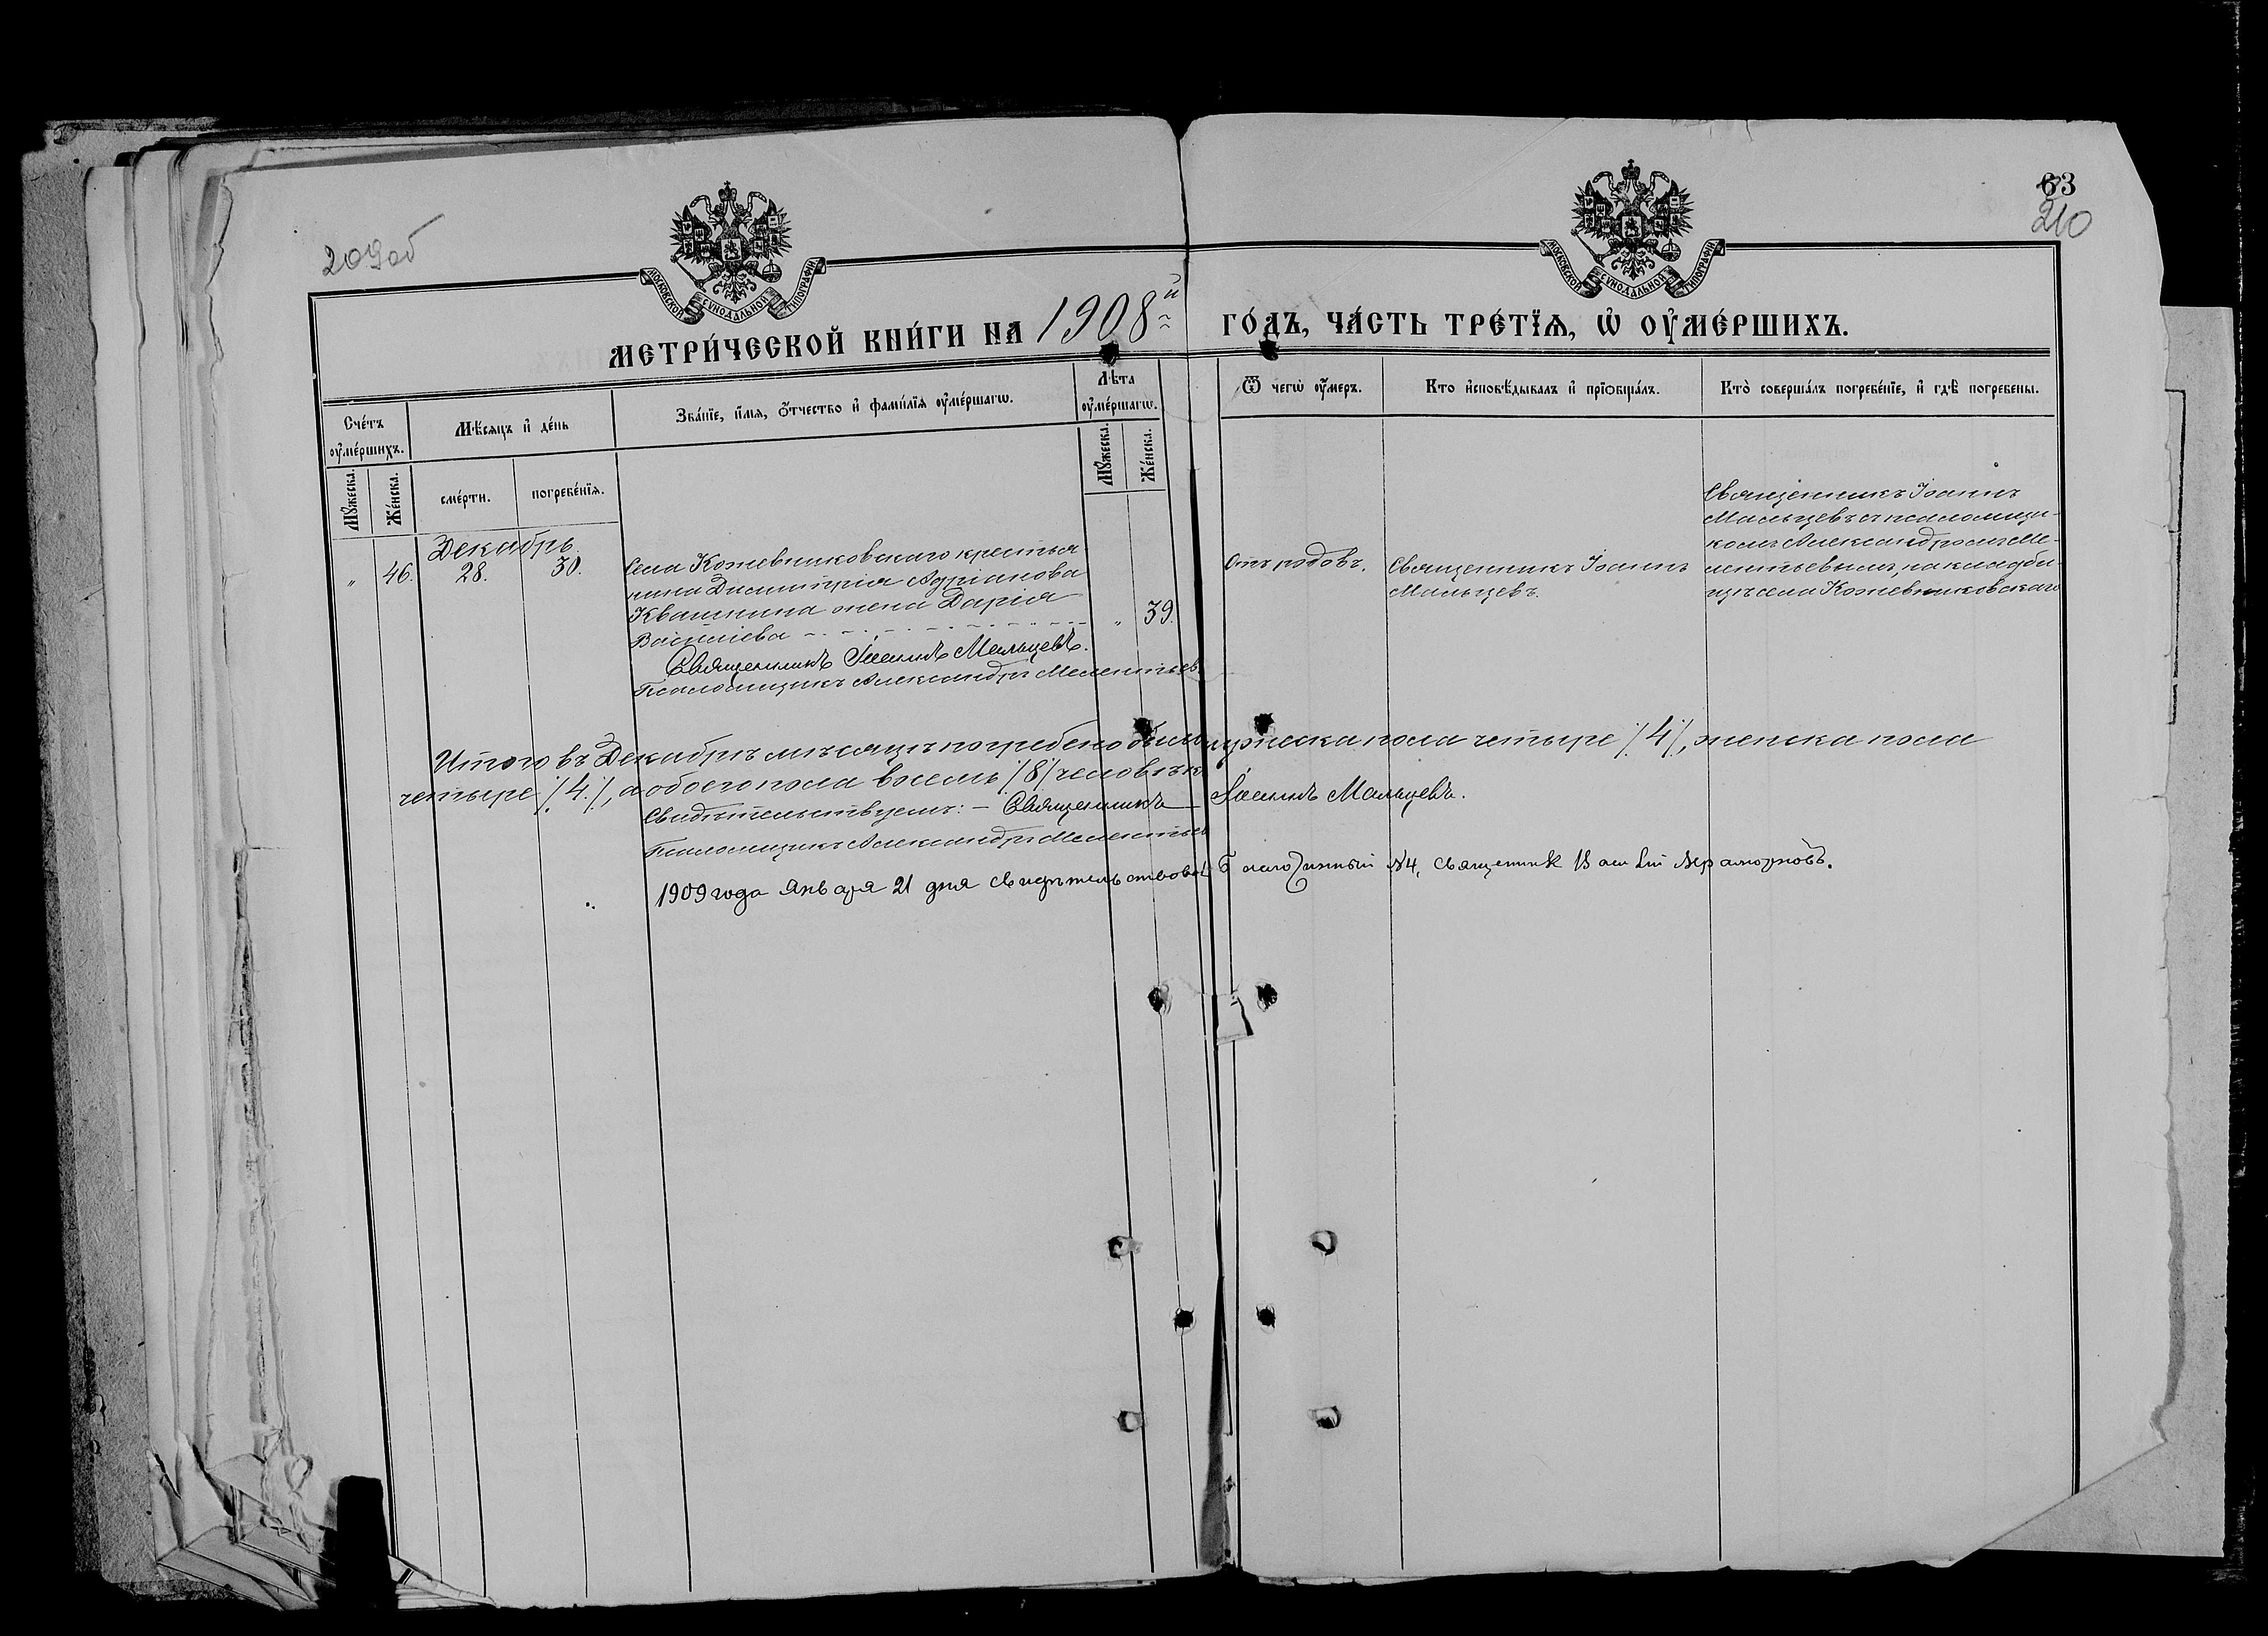 209об
63
210
МОСКОВСКОЙ СѴНОДАЛЬНОЙ ТИПОГРАФІИ
МОСКОВСКОЙ СѴНОДАЛЬНОЙ ТИПОГРАФІИ
МЕТРИ́ЧЕСКОЙ КНИ́ГИ НА 1908й ГО́ДЪ, ЧА́СТЬ ТРЕ́ТЇѦ, Ѡ҆ ОУ҆МЕ́РШИХЪ.
Сче́тъ оу҆ме́ршихъ.
Мѣ́сяцъ и҆ де́нь
Зва́нїе, и҆́мѧ, ѻ҆́тчество и҆ фамилїѧ оу҆ме́ршагѡ.
Лѣ́та оу҆ме́ршагѡ.
Ѿ чегѡ̀ оу҆́меръ.
Кто̀ и҆сповѣ́дывалъ и҆ прїѡбща́лъ.
Кто̀ соверша́лъ погребе́нїе, и҆ гдѣ̀ погребены.
Мꙋ́жеска.
Же́нска.
сме́рти.
погребе́нїѧ.
Мꙋ́жеска.
Же́нска.
Декабрь.
" 46. 28. 30.
Села Кожевниковскаго крестья-
нина Димитрія Адріанова
Квашнина жена Дарія
Василіева
" 39.
Отъ родовъ.
Священникъ Іоаннъ
Мальцевъ.
Священникъ Іоаннъ
Мальцевъ съ псаломщи-
комъ Александромъ Ме-
лентьевымъ, на кладби-
щѣ села Кожевниковскаго
Священникъ Іоаннъ Мальцевъ.
Псаломщикъ Александръ Мелентьев
Итого въ Декабрѣ мѣсяцѣ погребено было мужеска пола четыре /4/, женска пола
четыре /4/, а обоего пола восемь /8/ человѣкъ
Свидѣтельствуемъ: – Священникъ Іоаннъ Мальцевъ.
Псаломщикъ Александръ Мелентьев
1909 года Января 21 дня свидѣтельствовал Благочинный №4, священник Василій